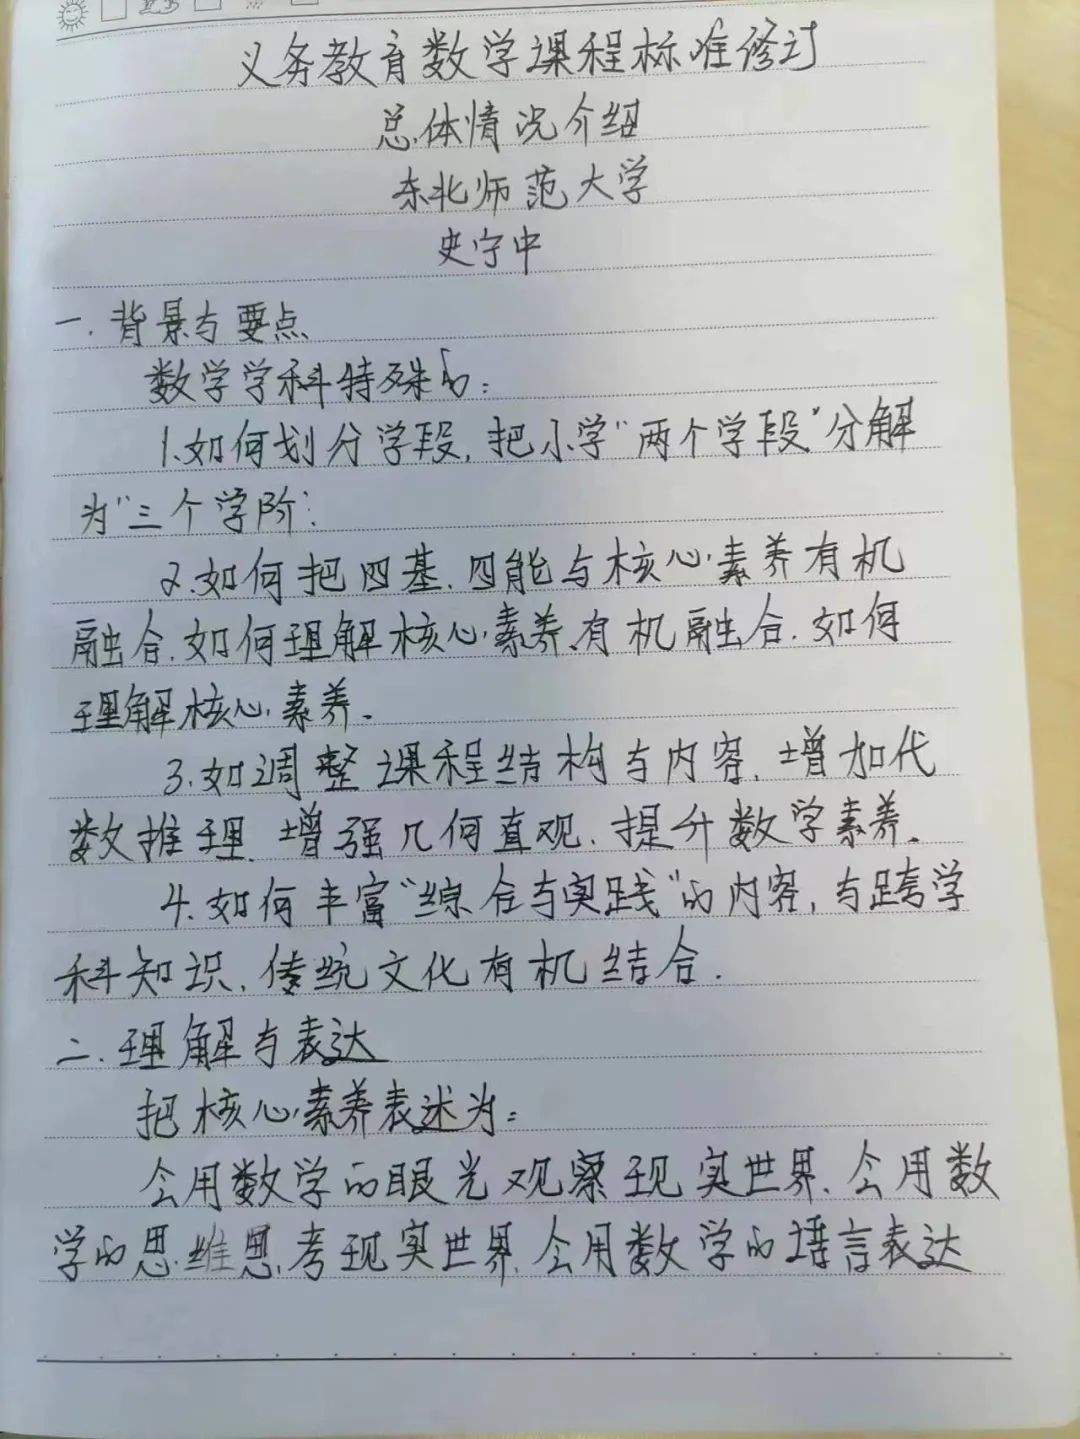 义务教育数学课程标准修订
总体情况介绍
东北师范大学
史宁中
一.背景与要点
数学学科特殊的:
1.如何划分学段,把小学“两个学段”分解
为“三个学阶”.
2.如何把四基.四能与核心素养有机
融合.如何理解核心素养、有机融合.如何
理解核心素养.
3.如调整课程结构与内容.增加代
数推理.增强几何直观.提升数学素养.
4.如何丰富“综合与实践”的内容,与跨学
科知识、传统文化有机结合.
二.理解与表达
把核心素养表述为:
会用数学的眼光观察现实世界.会用数
学的思维思考现实世界.会用数学的语言表达